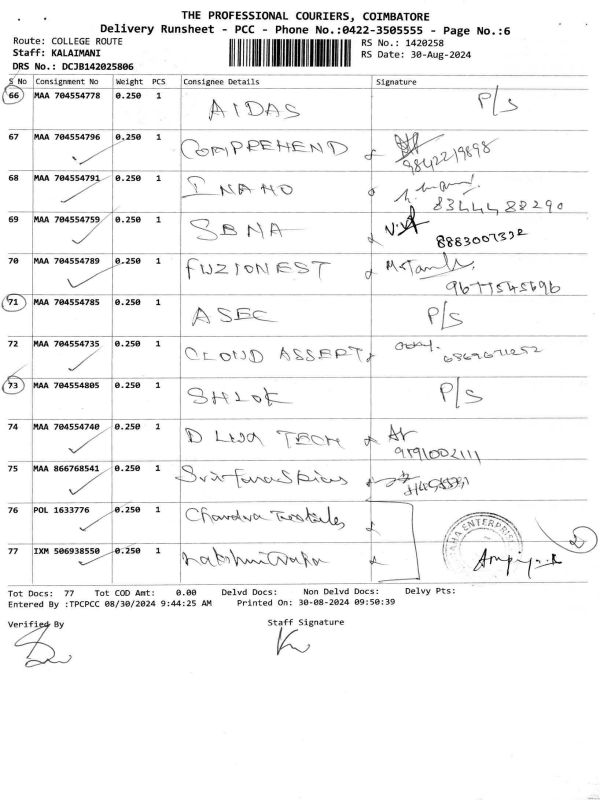 THE PROFESSIONAL COURIERS, COIMBATORE
Delivery Runsheet - PCC - Phone No.:0422-3505555 - Page No.:6
Route: COLLEGE ROUTE RS No.: 1420258
Staff: KALAIMANI RS Date: 30-Aug-2024
DRS No.: DCJB142025806
S No Consignment No Weight PCS Consignee Details Signature
66 MAA 704554778 0.250 1 AIDAS P/S
67 MAA 704554796 0.250 1 COMPREHEND 9842219898
68 MAA 704554791 0.250 1 INANO 8344488290
69 MAA 704554759 0.250 1 SBNA 8883007332
70 MAA 704554789 0.250 1 FUZIONEST 9677545696
71 MAA 704554785 0.250 1 ASEC P/S
72 MAA 704554735 0.250 1 CLOUD ASSERT
73 MAA 704554805 0.250 1 SHLOK P/S
74 MAA 704554740 0.250 1 TECH 9191002111
75 MAA 866768541 0.250 1
76 POL 1633776 0.250 1 Chandra
77 IXM 506938550 0.250 1 ENTERPRIS 2
Tot Docs: 77 Tot COD Amt: 0.00 Delvd Docs: Non Delvd Docs: Delvy Pts:
Entered By :TPCPCC 08/30/2024 9:44:25 AM Printed On: 30-08-2024 09:50:39
Verified By Staff Signature